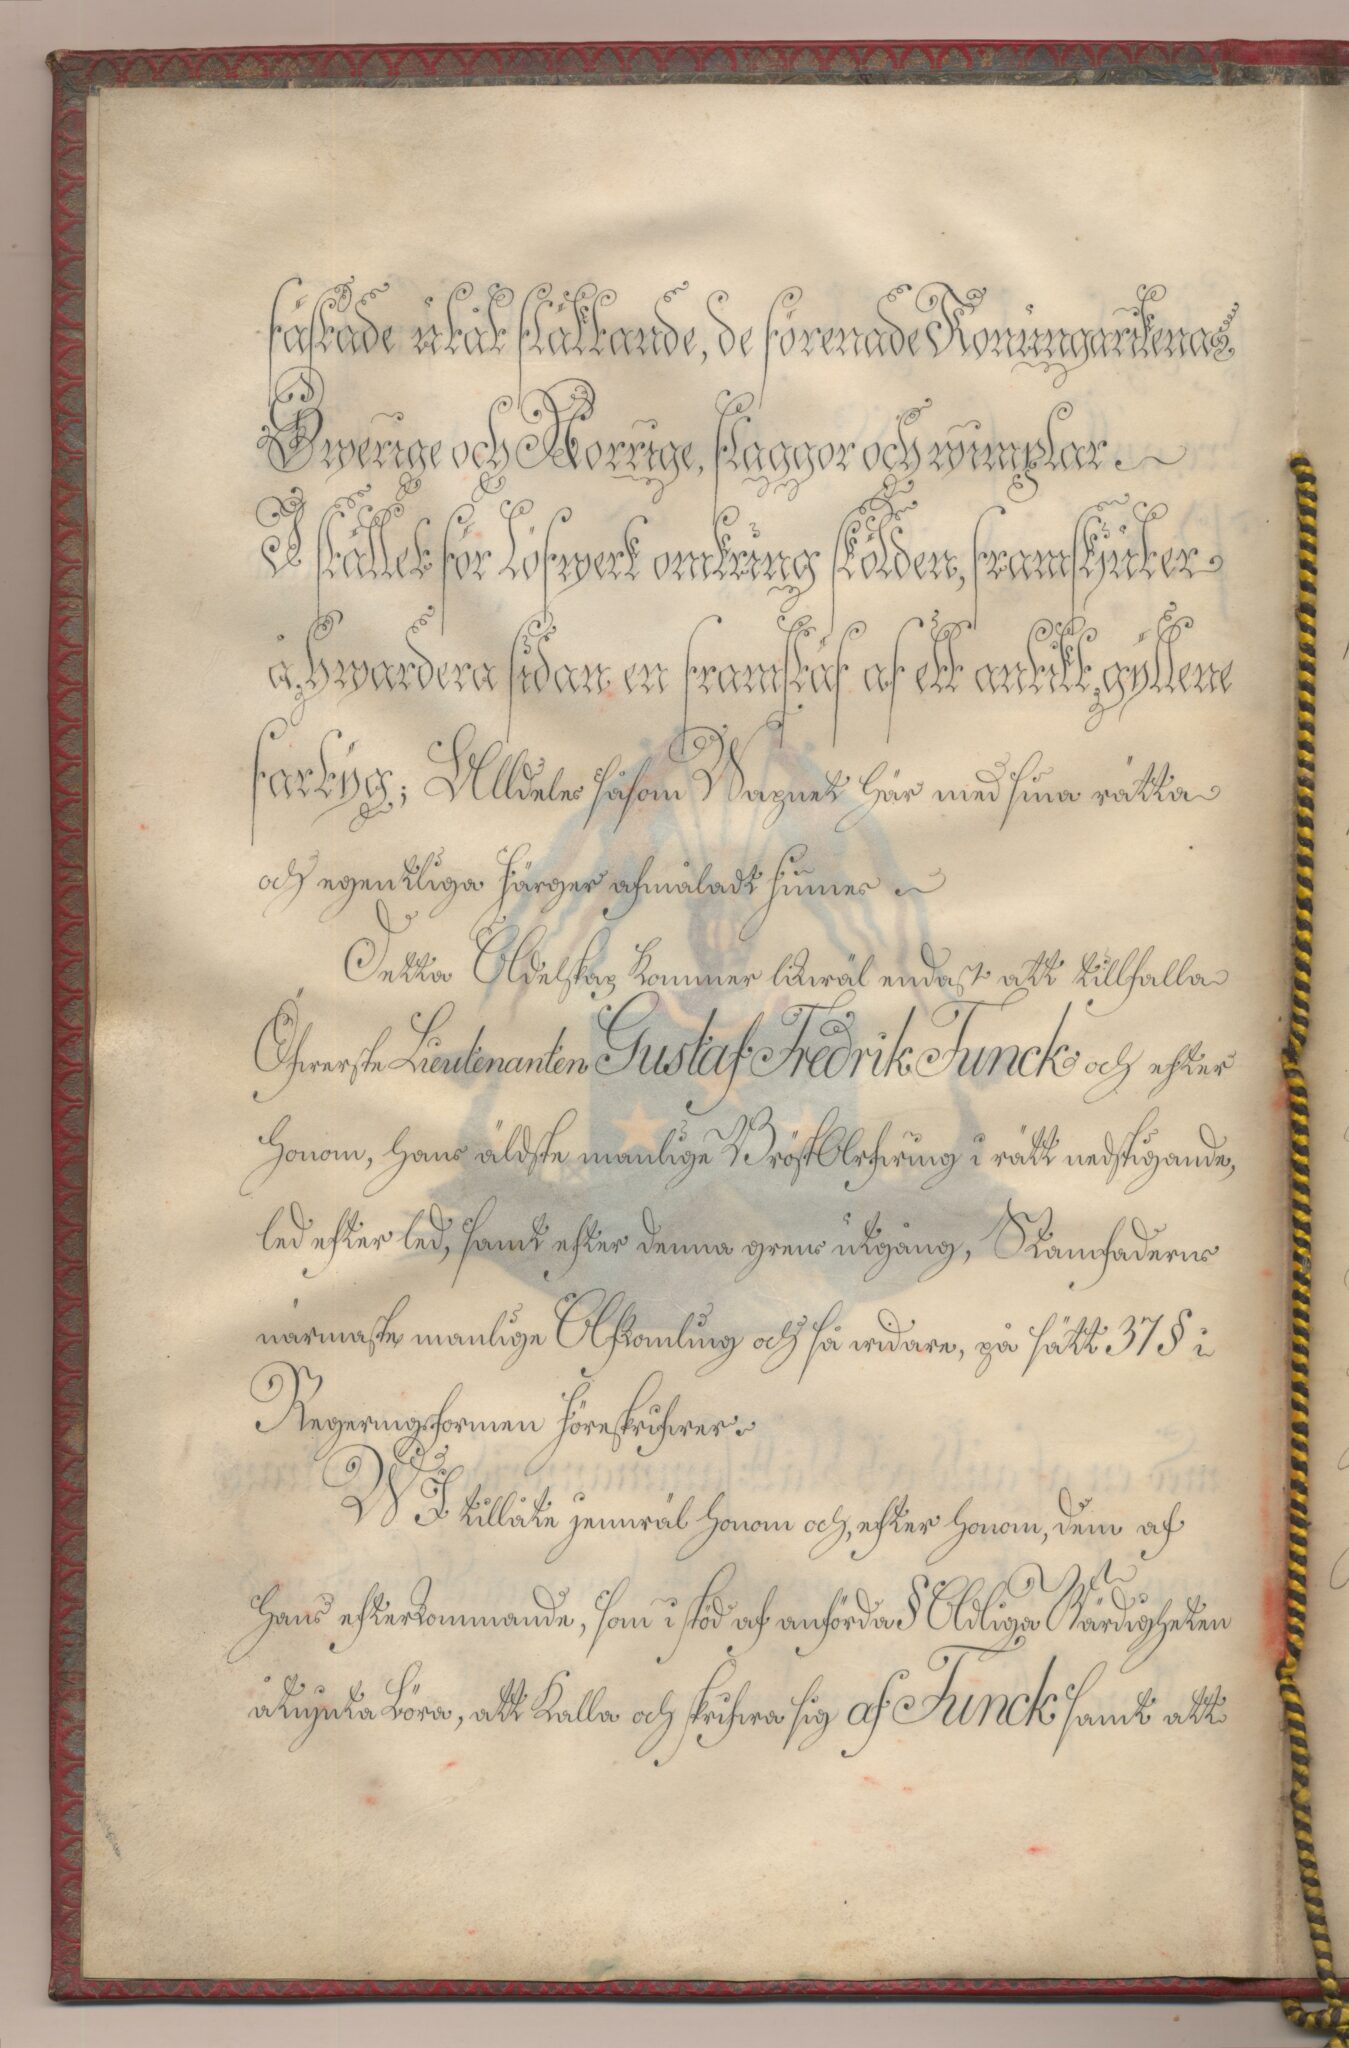 fästade utåt fläktande, de förenade Konungarikenas
Swerige och Norrige, flaggor och wimplar.
I stället för Löfwerk omkring skölden, framskjuter
å hwardera sidan en framstäf af ett antikt, gyllene
fartyg; Alldeles såsom Wapnet här med sina rätta
och egentliga färger afmåladt finnes.
Detta Adelskap kommer likwäl endast att tillfalla
Öfwerste Lieutenanten Gustaf Fredrik Funck och efter
honom, hans äldste manlige Bröst Arfwing i rätt nedstigande,
led efter led, samt efter denna grens utgång, Stamfaderns
närmaste manlige Ättling och så widare, på sätt 37 § i
Regeringsformen föreskrifwer.
WI tillåte jemwäl honom och, efter honom, dem af
hans efterkommande, som i stöd af anförda § Adliga Wärdigheten
åtnjuta böra, att kalla och skrifwa sig af Funck samt att